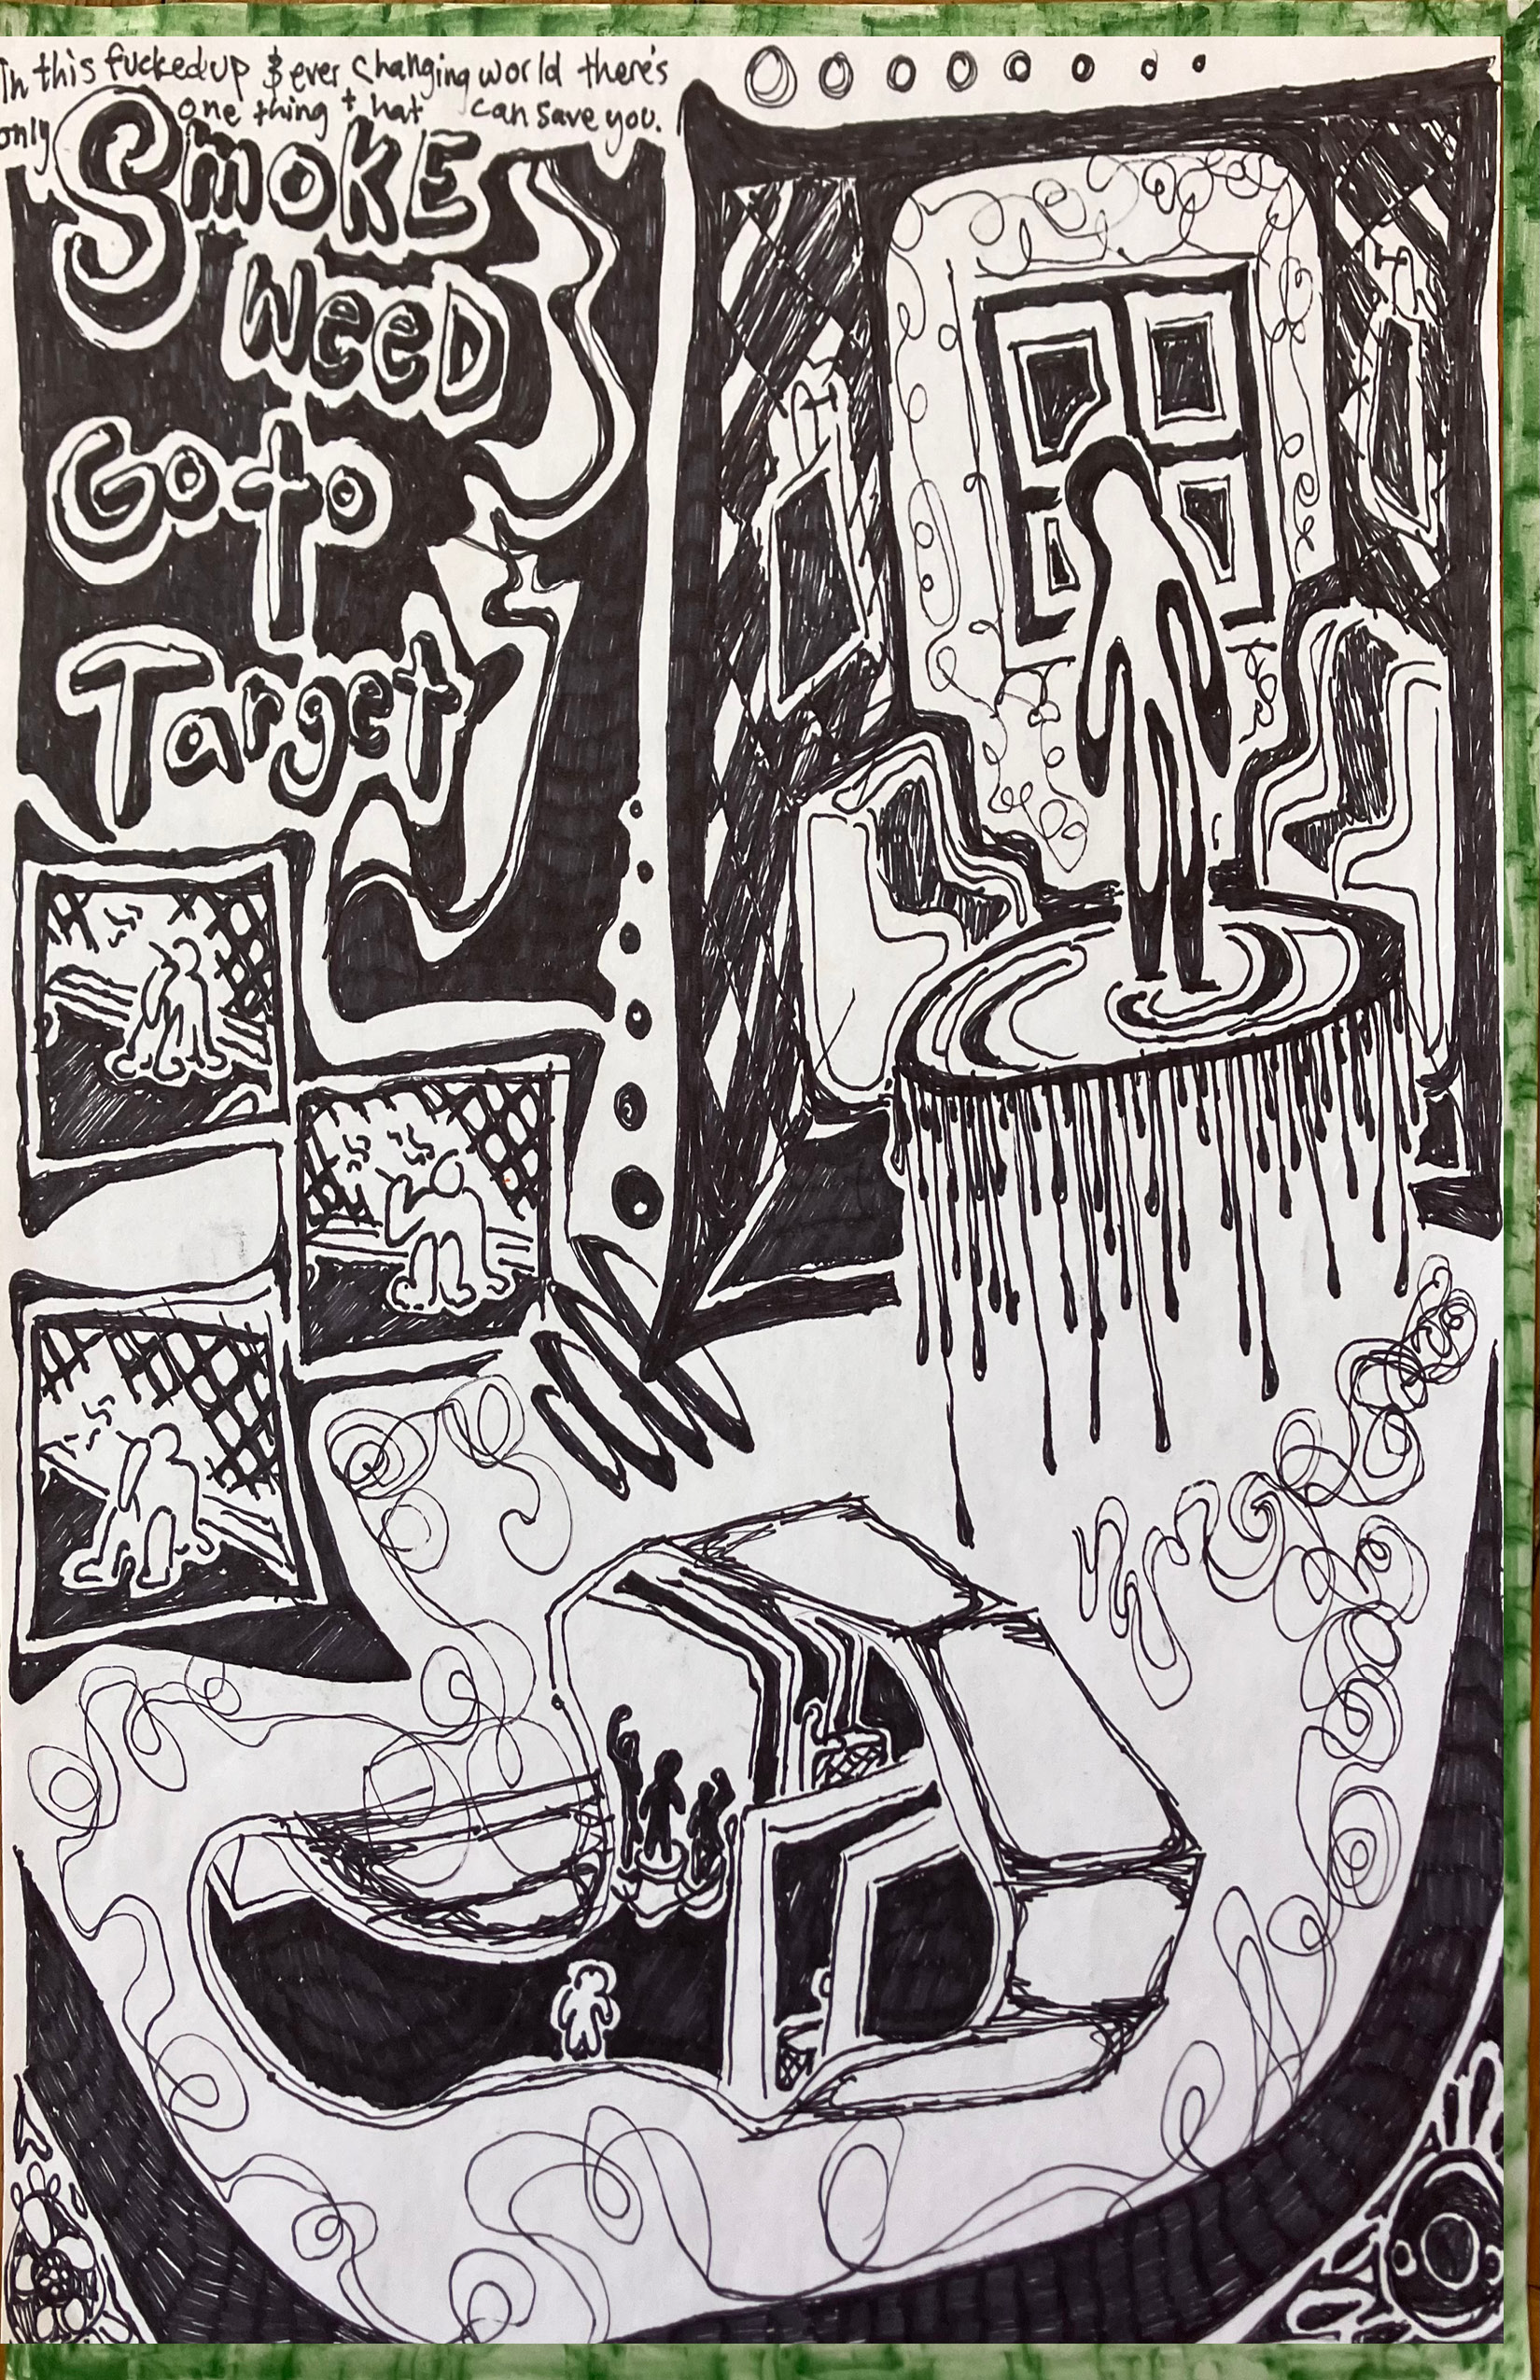 In this fucked up & ever changing world there's
only one thing that can save you.
Smoke
Weed
Go to
Target